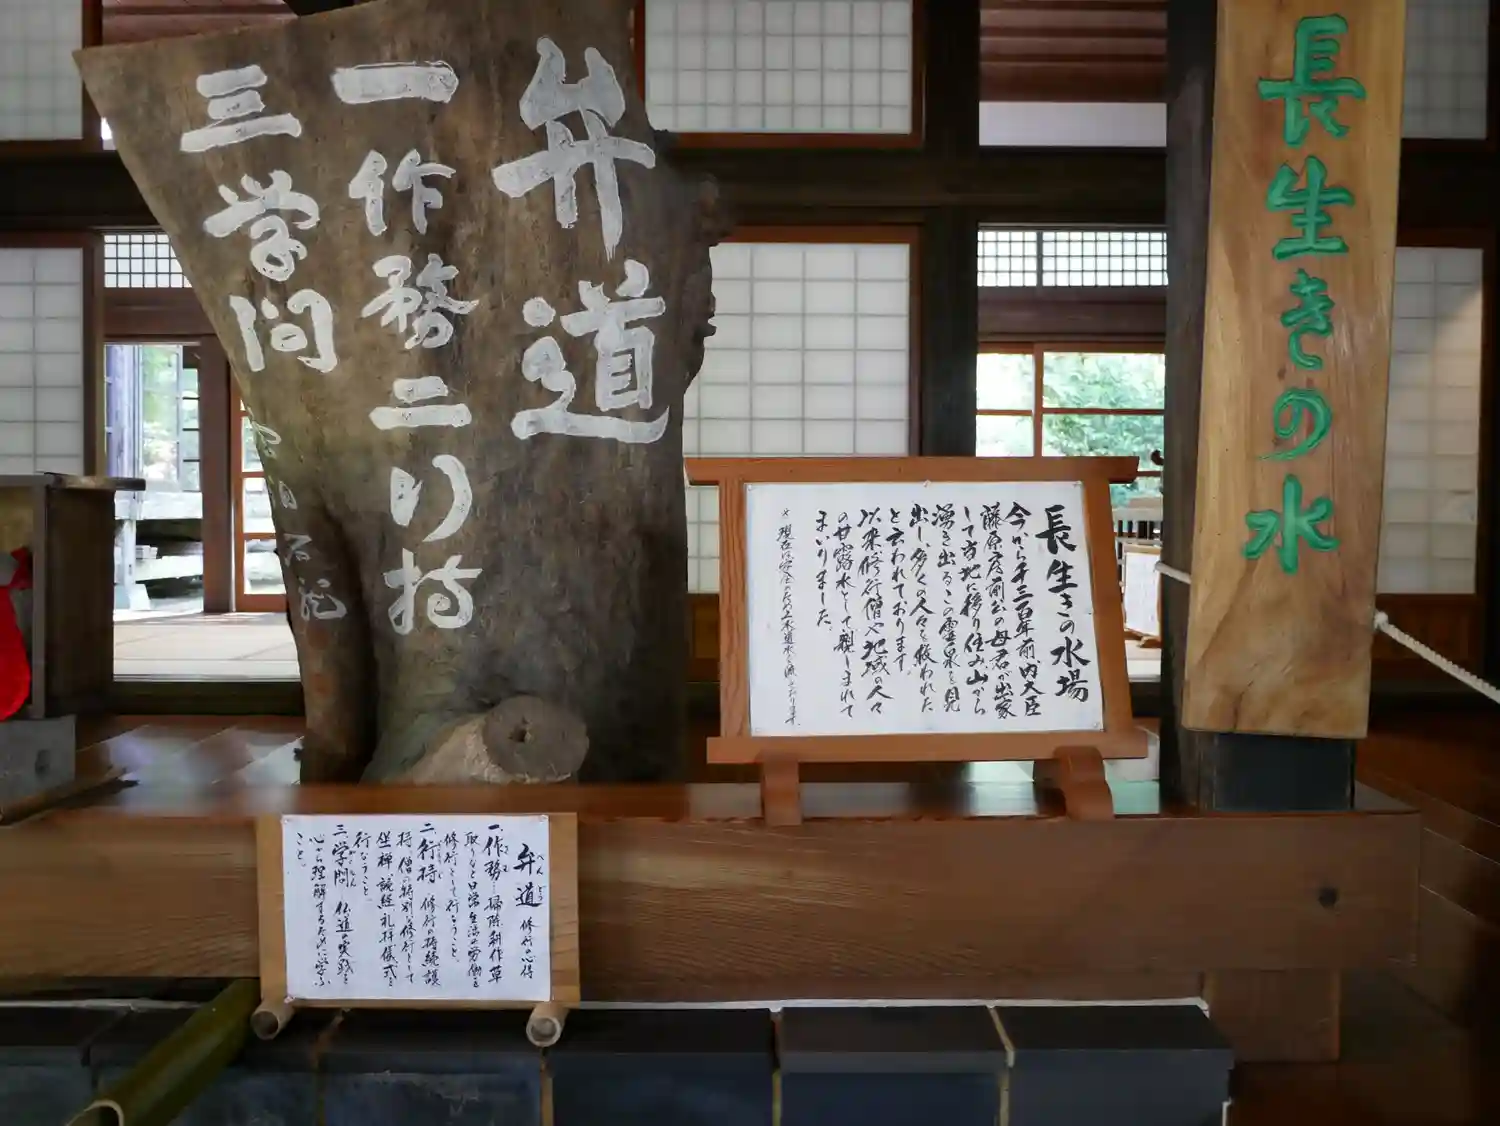 長生きの水
弁道
一作務二行持
三学問
長生きの水場
今から千三百年前、内大臣
藤原房前公の母君が出家
して当地に移り住み山から
湧き出るこの霊泉を見
出し、多くの人々を救われた
と云われております。
以来修行僧や地域の人々
の甘露水として親しまれて
まいりました。
※現在は安全のため上水道水を流しております。
弁道 修行の心得
べんどう
一、作務… 掃除耕作草
さむ
取りなど日常生活の労働を
修行として行なうこと。
二、行持 修行の持続護
ぎょうじ
持、僧の特別な修行として
坐禅、読経礼拝儀式を
行なうこと。
三、学問 仏道の実践を
がくもん
心から理解するために学ぶ
こと。